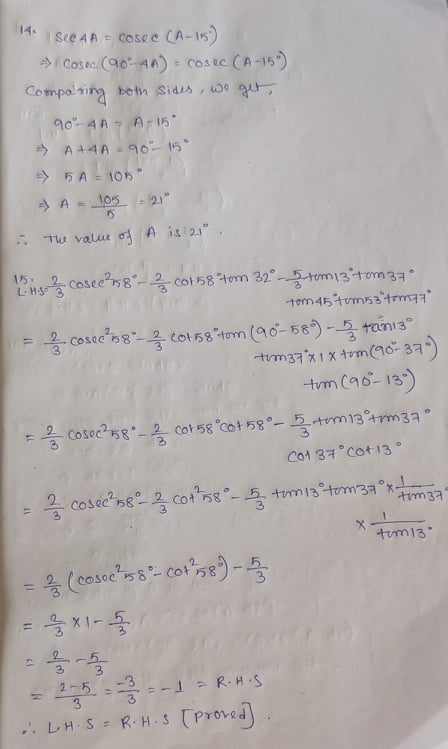 14. sec 4A = cosec (A-15°)
⇒ cosec (90°-4A) = cosec (A-15°)
Comparing both sides, we get,
90°-4A = A-15°
⇒ A+4A = 90°-15°
⇒ 5A = 105°
⇒ A = 105/5 = 21°
∴ The value of A is 21°.
15. L.H.S = 2/3 cosec²58° - 2/3 cot58° tan 32° - 5/3 tan13° tan37°
tan45° tan53° tan77°
= 2/3 cosec²58° - 2/3 cot58° tan (90°-58°) - 5/3 tan13°
tan37° x 1 x tan (90°-37°)
tan (90°-13°)
= 2/3 cosec²58° - 2/3 cot58° cot58° - 5/3 tan13° tan37°
cot37° cot13°
= 2/3 cosec²58° - 2/3 cot²58° - 5/3 tan13° tan37° x 1/tan37
x 1/tan13.
= 2/3 (cosec²58° - cot²58°) - 5/3
= 2/3 x 1 - 5/3
= 2/3 - 5/3
= 2-5/3 = -3/3 = -1 = R.H.S
∴ L.H.S = R.H.S [Proved].